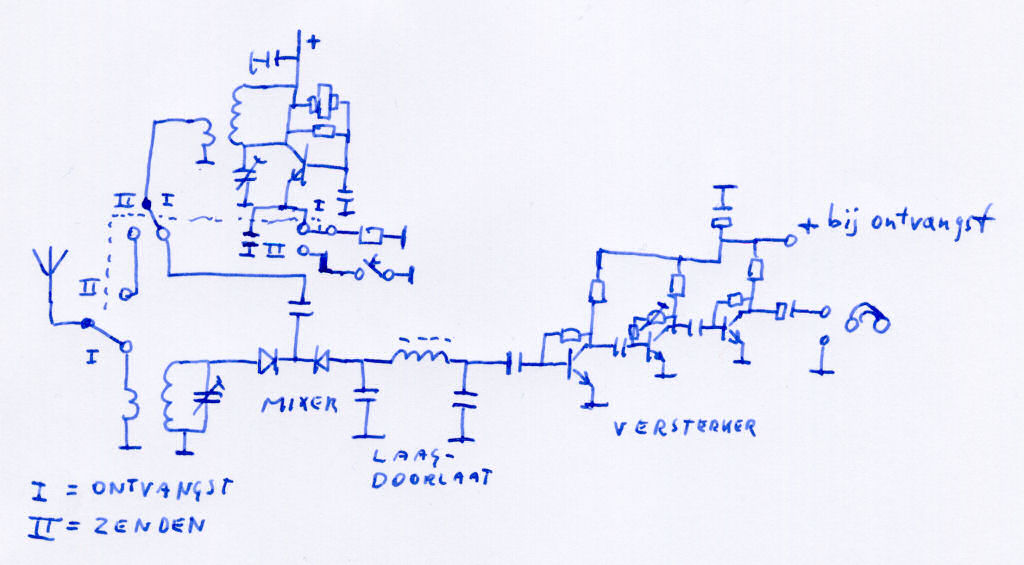 +
II I
I
I II
II
I
+ bij ontvangst
MIXER
VERSTERKER
LAAG-
DOORLAAT
I = ONTVANGST
II = ZENDEN